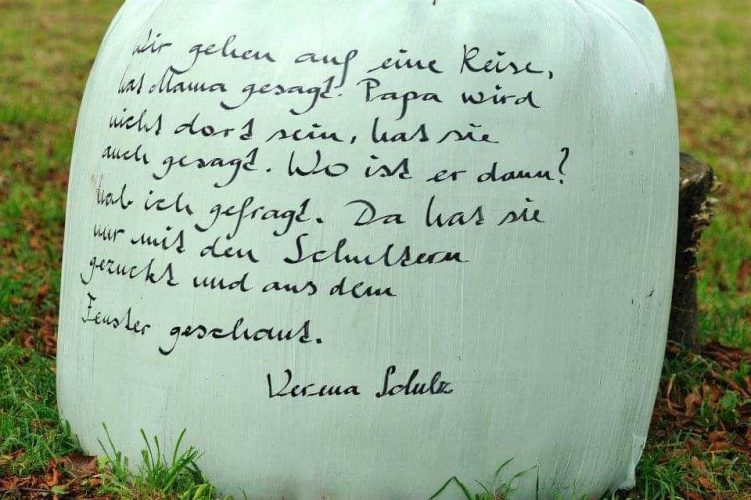 Wir gehen auf eine Reise,
hat Mama gesagt. Papa wird
nicht dort sein, hat sie
auch gesagt. Wo ist er dann?
hab ich gefragt. Da hat sie
nur mit den Schultern
gezuckt und aus dem
Fenster geschaut.
Verena Schulz